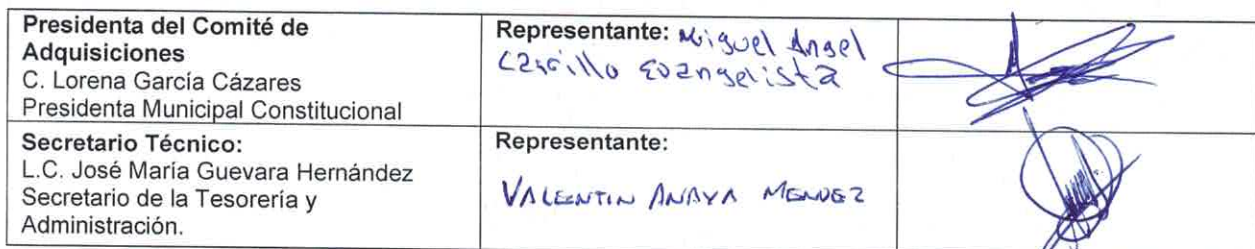 Presidenta del Comité de
Adquisiciones
C. Lorena García Cázares
Presidenta Municipal Constitucional
Representante: Miguel Angel
Castillo Evangelista
Secretario Técnico:
L.C. José María Guevara Hernández
Secretario de la Tesorería y
Administración.
Representante:
VALENTIN ANAYA MENDEZ